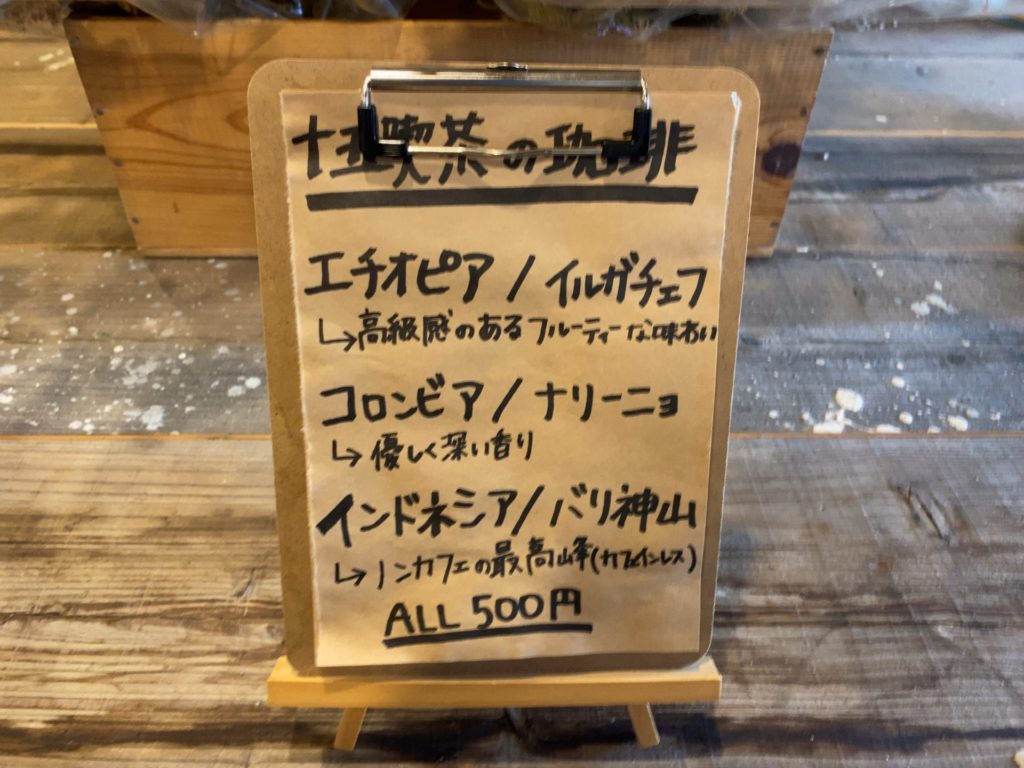 十五喫茶の珈琲
エチオピア/イルガチェフ
↳高級感のあるフルーティーな味わい
コロンビア/ナリーニョ
↳優しく深い香り
インドネシア/バリ神山
↳ノンカフェの最高峰(カフェインレス)
ALL 500円